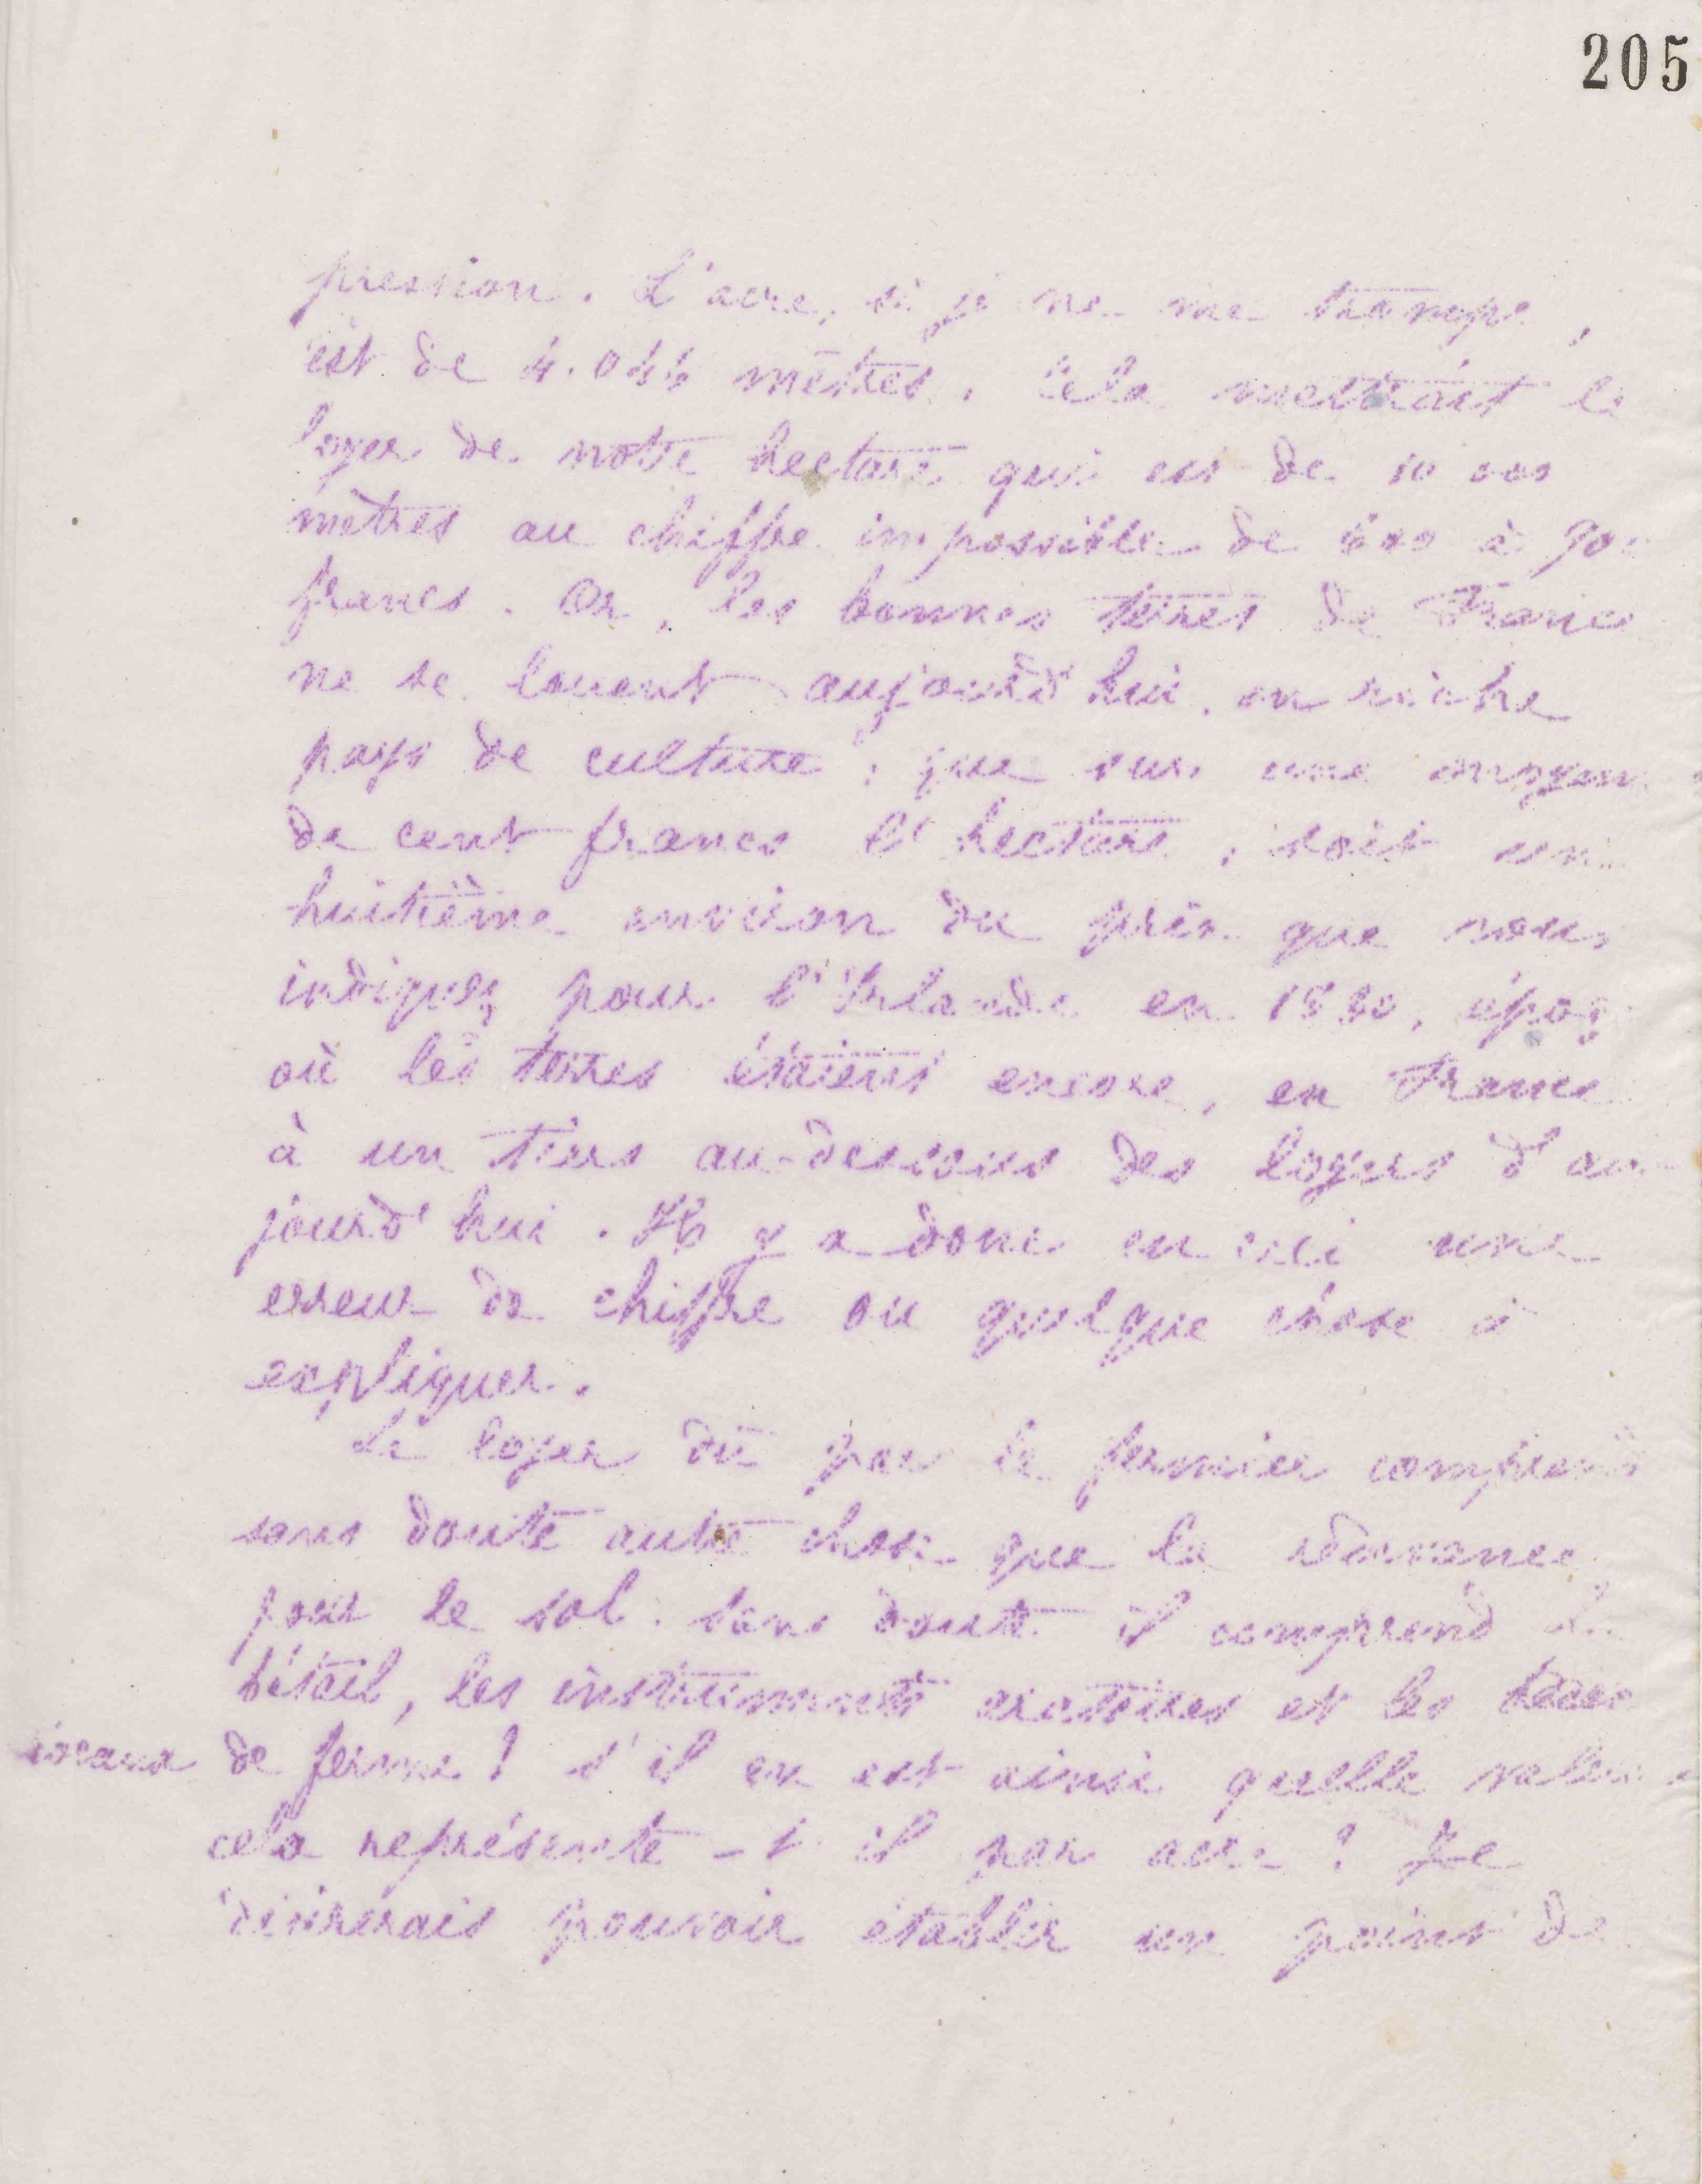 205
pression. L'acre, si je ne me trompe,
est de 4.044 mètres. Cela mettrait le
loyer de notre hectare qui est de 10 000
mètres au chiffre impossible de 800 à 900
francs. Or, les bonnes terres de France
ne se louent aujourd'hui, en riche
pays de culture, que sur une moyenne
de cent francs l'hectare, soit un
huitième environ du prix que vous
indiquez pour l'Irlande en 1830, époq
où les terres étaient encore, en France
à un tiers au-dessous des loyers d'au-
jourd'hui. Il y a donc en ceci une
erreur de chiffre ou quelque chose à
expliquer.
Le loyer dû par le fermier comprend
sans doute autre chose que la redevance
pour le sol. sans doute il comprend le
bétail, les instruments aratoires et les
de ferme ! s'il en est ainsi quelle valeur
cela représente-t-il par acre ? Je
désirerais pouvoir établir un point de